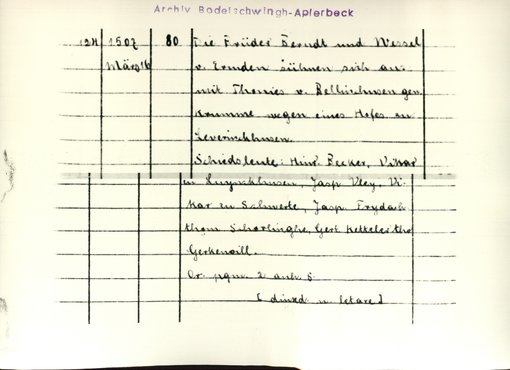 Archiv Bodelschwingh-Aplerbeck
124 1507 80 Die Brüder Berndt und Wessel
März 16 v. Ermden sühnen sich aus
mit Thonies v. Bellinchusen gen.
Krumme wegen eines Hofes zu
Leverinckhusen.
Schiedsleute: Hinr. Becker, Vikar
zu Luynckhusen, Jasp. Vley, Vi-
kar zu Schwerte, Jasp. Frydach
thom Schorlinghe, Gert Ketteler tho
Or. pgm. 2 anh. S.
[ dinxd. n. letare ]